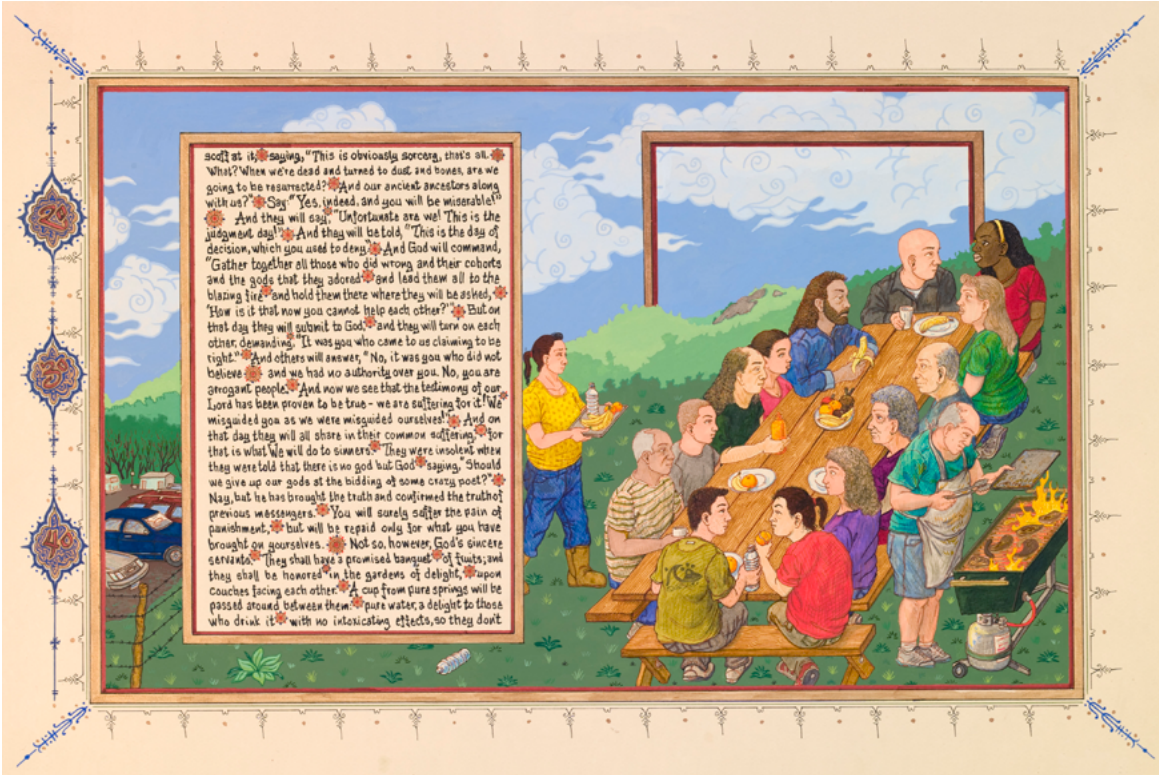 scoff at it, saying, "This is obviously sorcery, that's all.
What? When we're dead and turned to dust and bones, are we
going to be resurrected? And our ancient ancestors along
with us?" Say: "Yes, indeed, and you will be miserable!"
And they will say, "Unfortunate are we! This is the
judgment day!" And they will be told, "This is the day of
decision, which you used to deny." And God will command,
"Gather together all those who did wrong and their cohorts
and the gods that they adored and lead them all to the
blazing fire and hold them there where they will be asked,
'How is it that now you cannot help each other?'" But on
that day they will submit to God, and they will turn on each
other, demanding, "It was you who came to us claiming to be
right." And others will answer, "No, it was you who did not
believe and we had no authority over you. No, you are
arrogant people. And now we see that the testimony of our
Lord has been proven to be true - we are suffering for it! We
misguided you as we were misguided ourselves!" And on
that day they will all share in their common suffering, for
that is what We will do to sinners. They were insolent when
they were told that there is no god but God saying, "Should
we give up our gods at the bidding of some crazy poet?"
Nay, but he has brought the truth and confirmed the truth of
previous messengers. You will surely suffer the pain of
punishment, but will be repaid only for what you have
brought on yourselves. Not so, however, God's sincere
servants. They shall have a promised banquet of fruits; and
they shall be honored in the gardens of delight, upon
couches facing each other. A cup from pure springs will be
passed around between them: pure water, a delight to those
who drink it with no intoxicating effects, so they don't
20
30
40